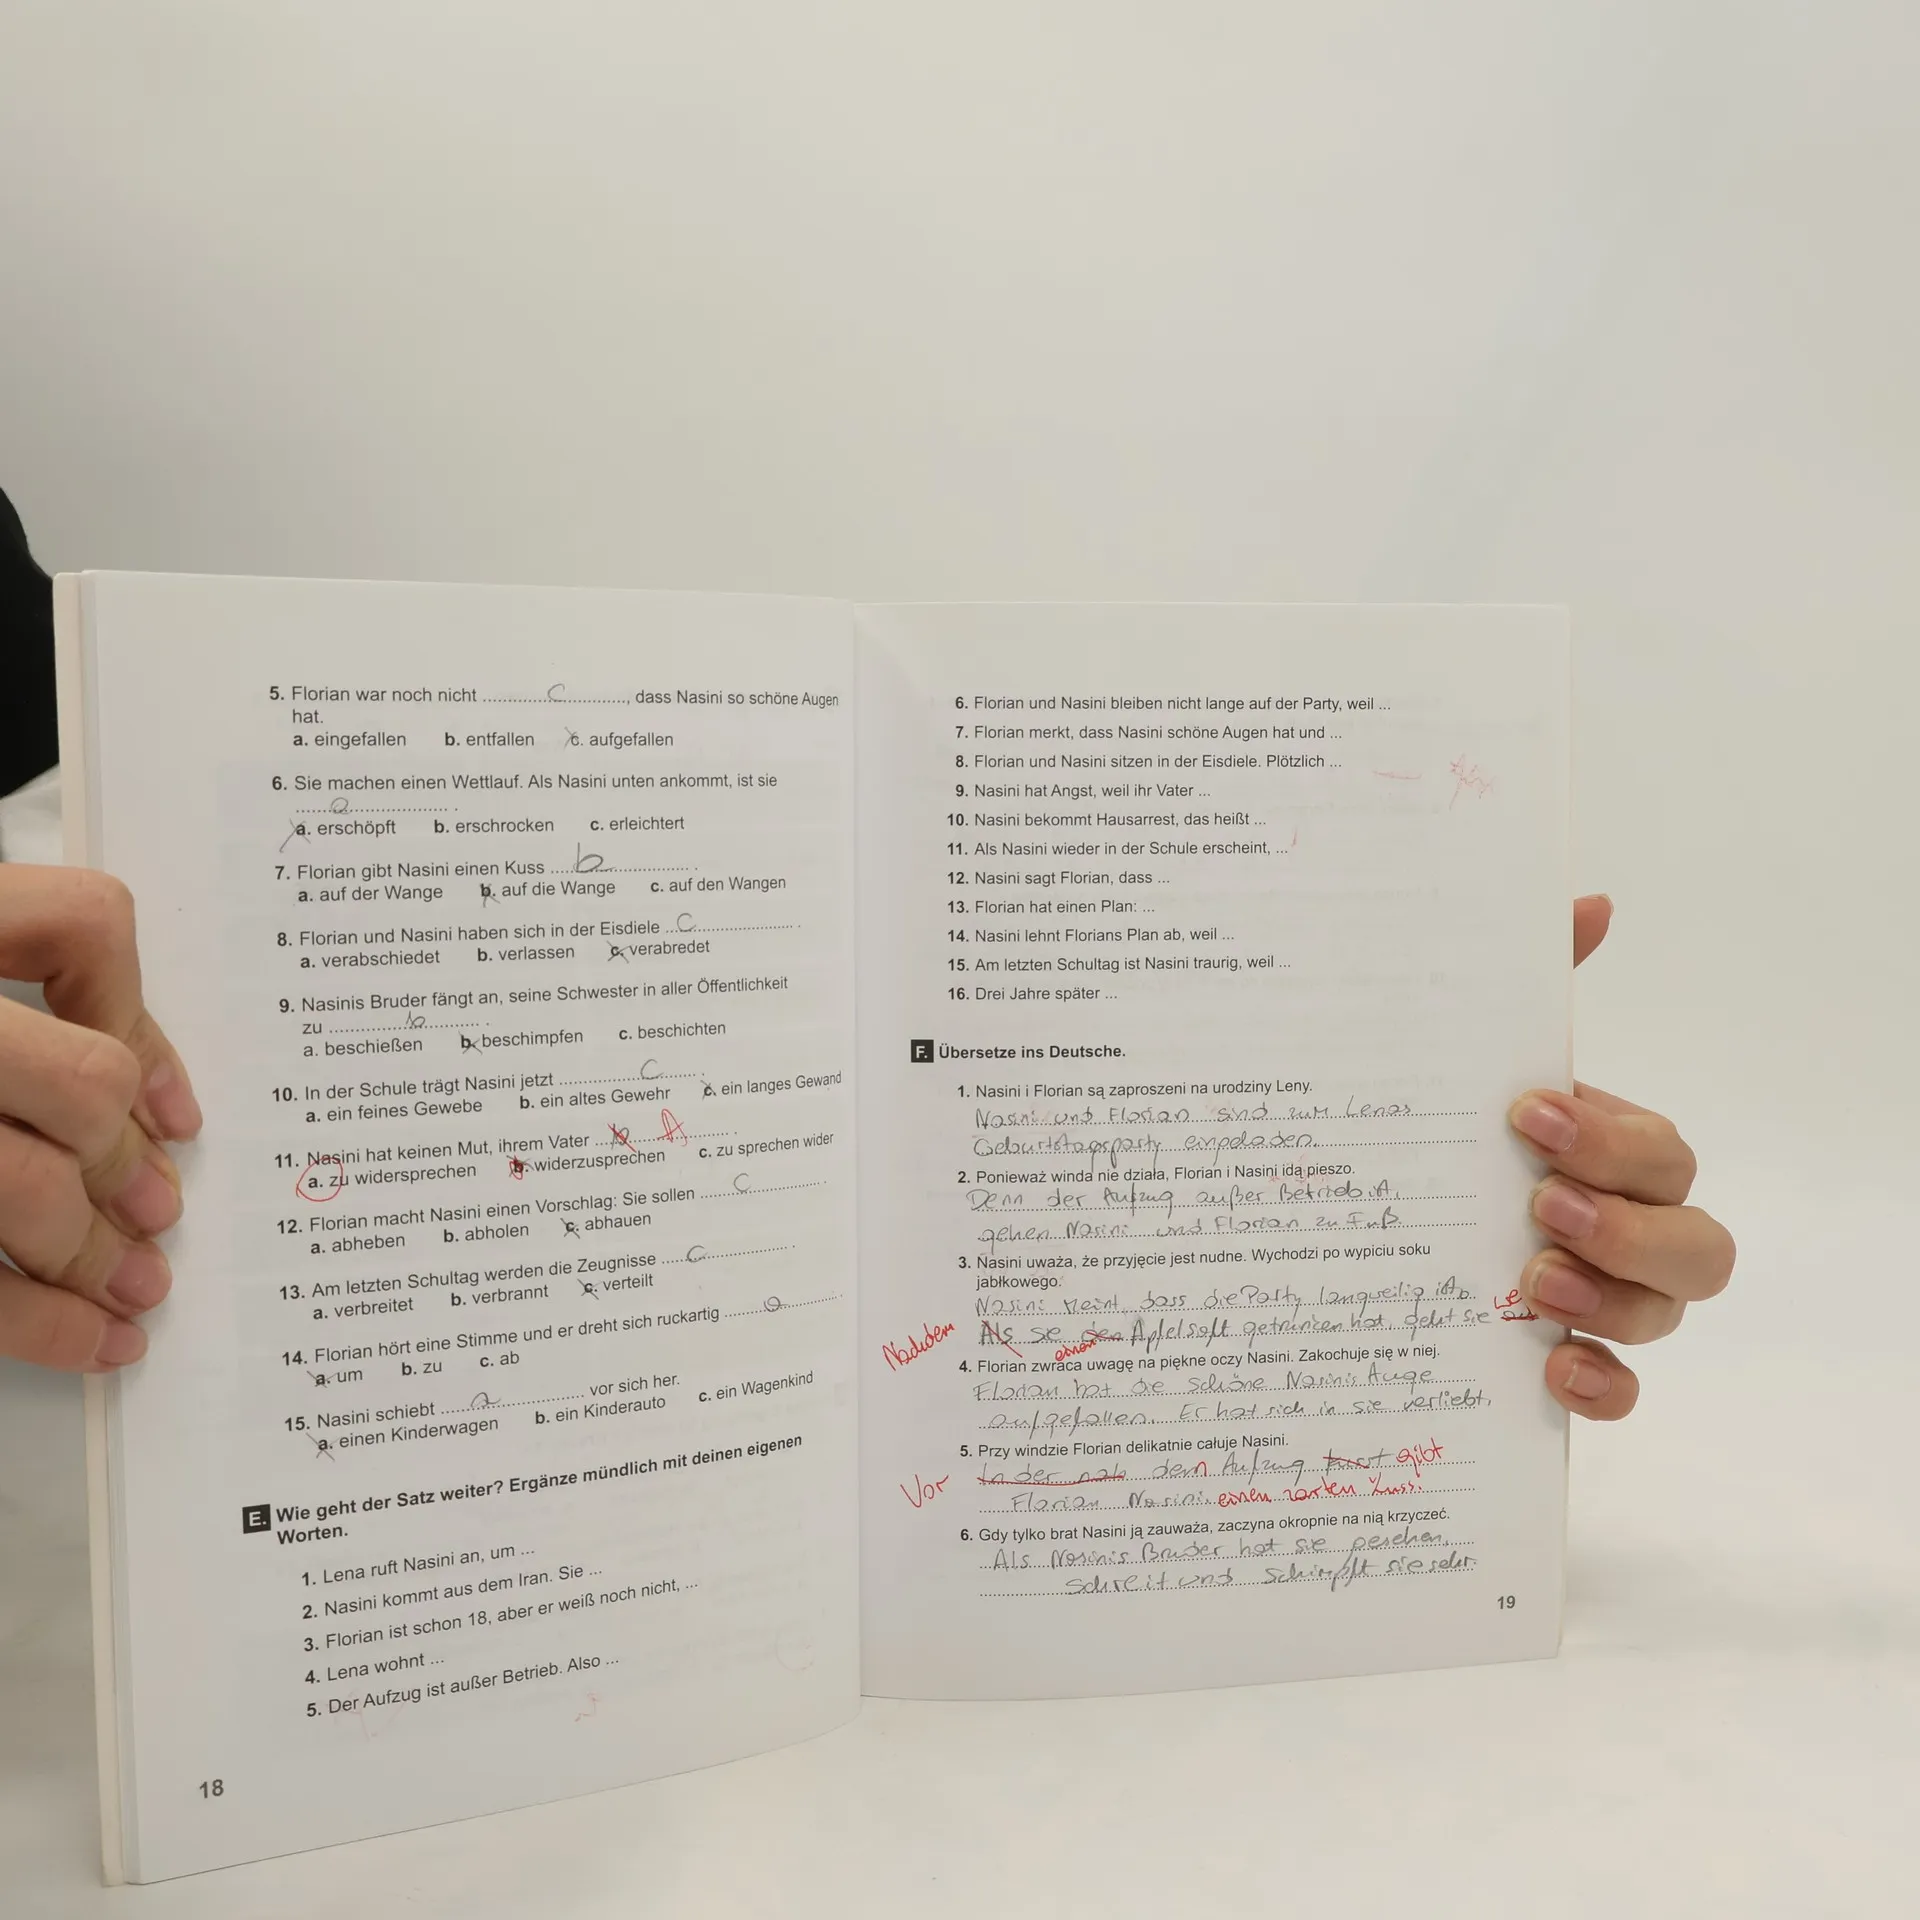 5. Florian war noch nicht ..........c.........., dass Nasini so schöne Augen
hat.
a. eingefallen b. entfallen c. aufgefallen
6. Sie machen einen Wettlauf. Als Nasini unten ankommt, ist sie
......a.................... .
a. erschöpft b. erschrocken c. erleichtert
7. Florian gibt Nasini einen Kuss .....b................ .
a. auf der Wange b. auf die Wange c. auf den Wangen
8. Florian und Nasini haben sich in der Eisdiele ...c.................... .
a. verabschiedet b. verlassen c. verabredet
9. Nasinis Bruder fängt an, seine Schwester in aller Öffentlichkeit
zu ...............b............ .
a. beschießen b. beschimpfen c. beschichten
10. In der Schule trägt Nasini jetzt ................c........ .
a. ein feines Gewebe b. ein altes Gewehr c. ein langes Gewand
11. Nasini hat keinen Mut, ihrem Vater ...b......A.......... .
a. zu widersprechen b. widerzusprechen c. zu sprechen wider
12. Florian macht Nasini einen Vorschlag: Sie sollen .......c............... .
a. abheben b. abholen c. abhauen
13. Am letzten Schultag werden die Zeugnisse .....c................. .
a. verbreitet b. verbrannt c. verteilt
14. Florian hört eine Stimme und er dreht sich ruckartig ........a............ .
a. um b. zu c. ab
15. Nasini schiebt ......a................ vor sich her.
a. einen Kinderwagen b. ein Kinderauto c. ein Wagenkind
E. Wie geht der Satz weiter? Ergänze mündlich mit deinen eigenen
Worten.
1. Lena ruft Nasini an, um ...
2. Nasini kommt aus dem Iran. Sie ...
3. Florian ist schon 18, aber er weiß noch nicht, ...
4. Lena wohnt ...
5. Der Aufzug ist außer Betrieb. Also ...
18
6. Florian und Nasini bleiben nicht lange auf der Party, weil ...
7. Florian merkt, dass Nasini schöne Augen hat und ...
8. Florian und Nasini sitzen in der Eisdiele. Plötzlich ...
9. Nasini hat Angst, weil ihr Vater ...
10. Nasini bekommt Hausarrest, das heißt ...
11. Als Nasini wieder in der Schule erscheint, ...
12. Nasini sagt Florian, dass ...
13. Florian hat einen Plan: ...
14. Nasini lehnt Florians Plan ab, weil ...
15. Am letzten Schultag ist Nasini traurig, weil ...
16. Drei Jahre später ...
F. Übersetze ins Deutsche.
1. Nasini i Florian są zaproszeni na urodziny Leny.
Nasini und Florian sind zum Lenas
Geburtstagsparty eingeladen.
2. Ponieważ winda nie działa, Florian i Nasini idą pieszo.
Denn der Aufzug außer Betrieb ist,
gehen Nasini und Florian zu Fuß.
3. Nasini uważa, że przyjęcie jest nudne. Wychodzi po wypiciu soku
jabłkowego.
Nasini meint, dass die Party langweilig ist.
Nachdem Als sie den einen Apfelsaft getrunken hat, geht sie
4. Florian zwraca uwagę na piękne oczy Nasini. Zakochuje się w niej.
Florian hat die schöne Nasinis Auge
aufgefallen. Er hat sich in sie verliebt.
5. Przy windzie Florian delikatnie całuje Nasini.
Vor In der nah dem Aufzug küsst gibt
Florian Nasini einen zarten Kuss.
6. Gdy tylko brat Nasini ją zauważa, zaczyna okropnie na nią krzyczeć.
Als Nasinis Bruder hat sie gesehen,
schreit und schimpft sie sehr.
19